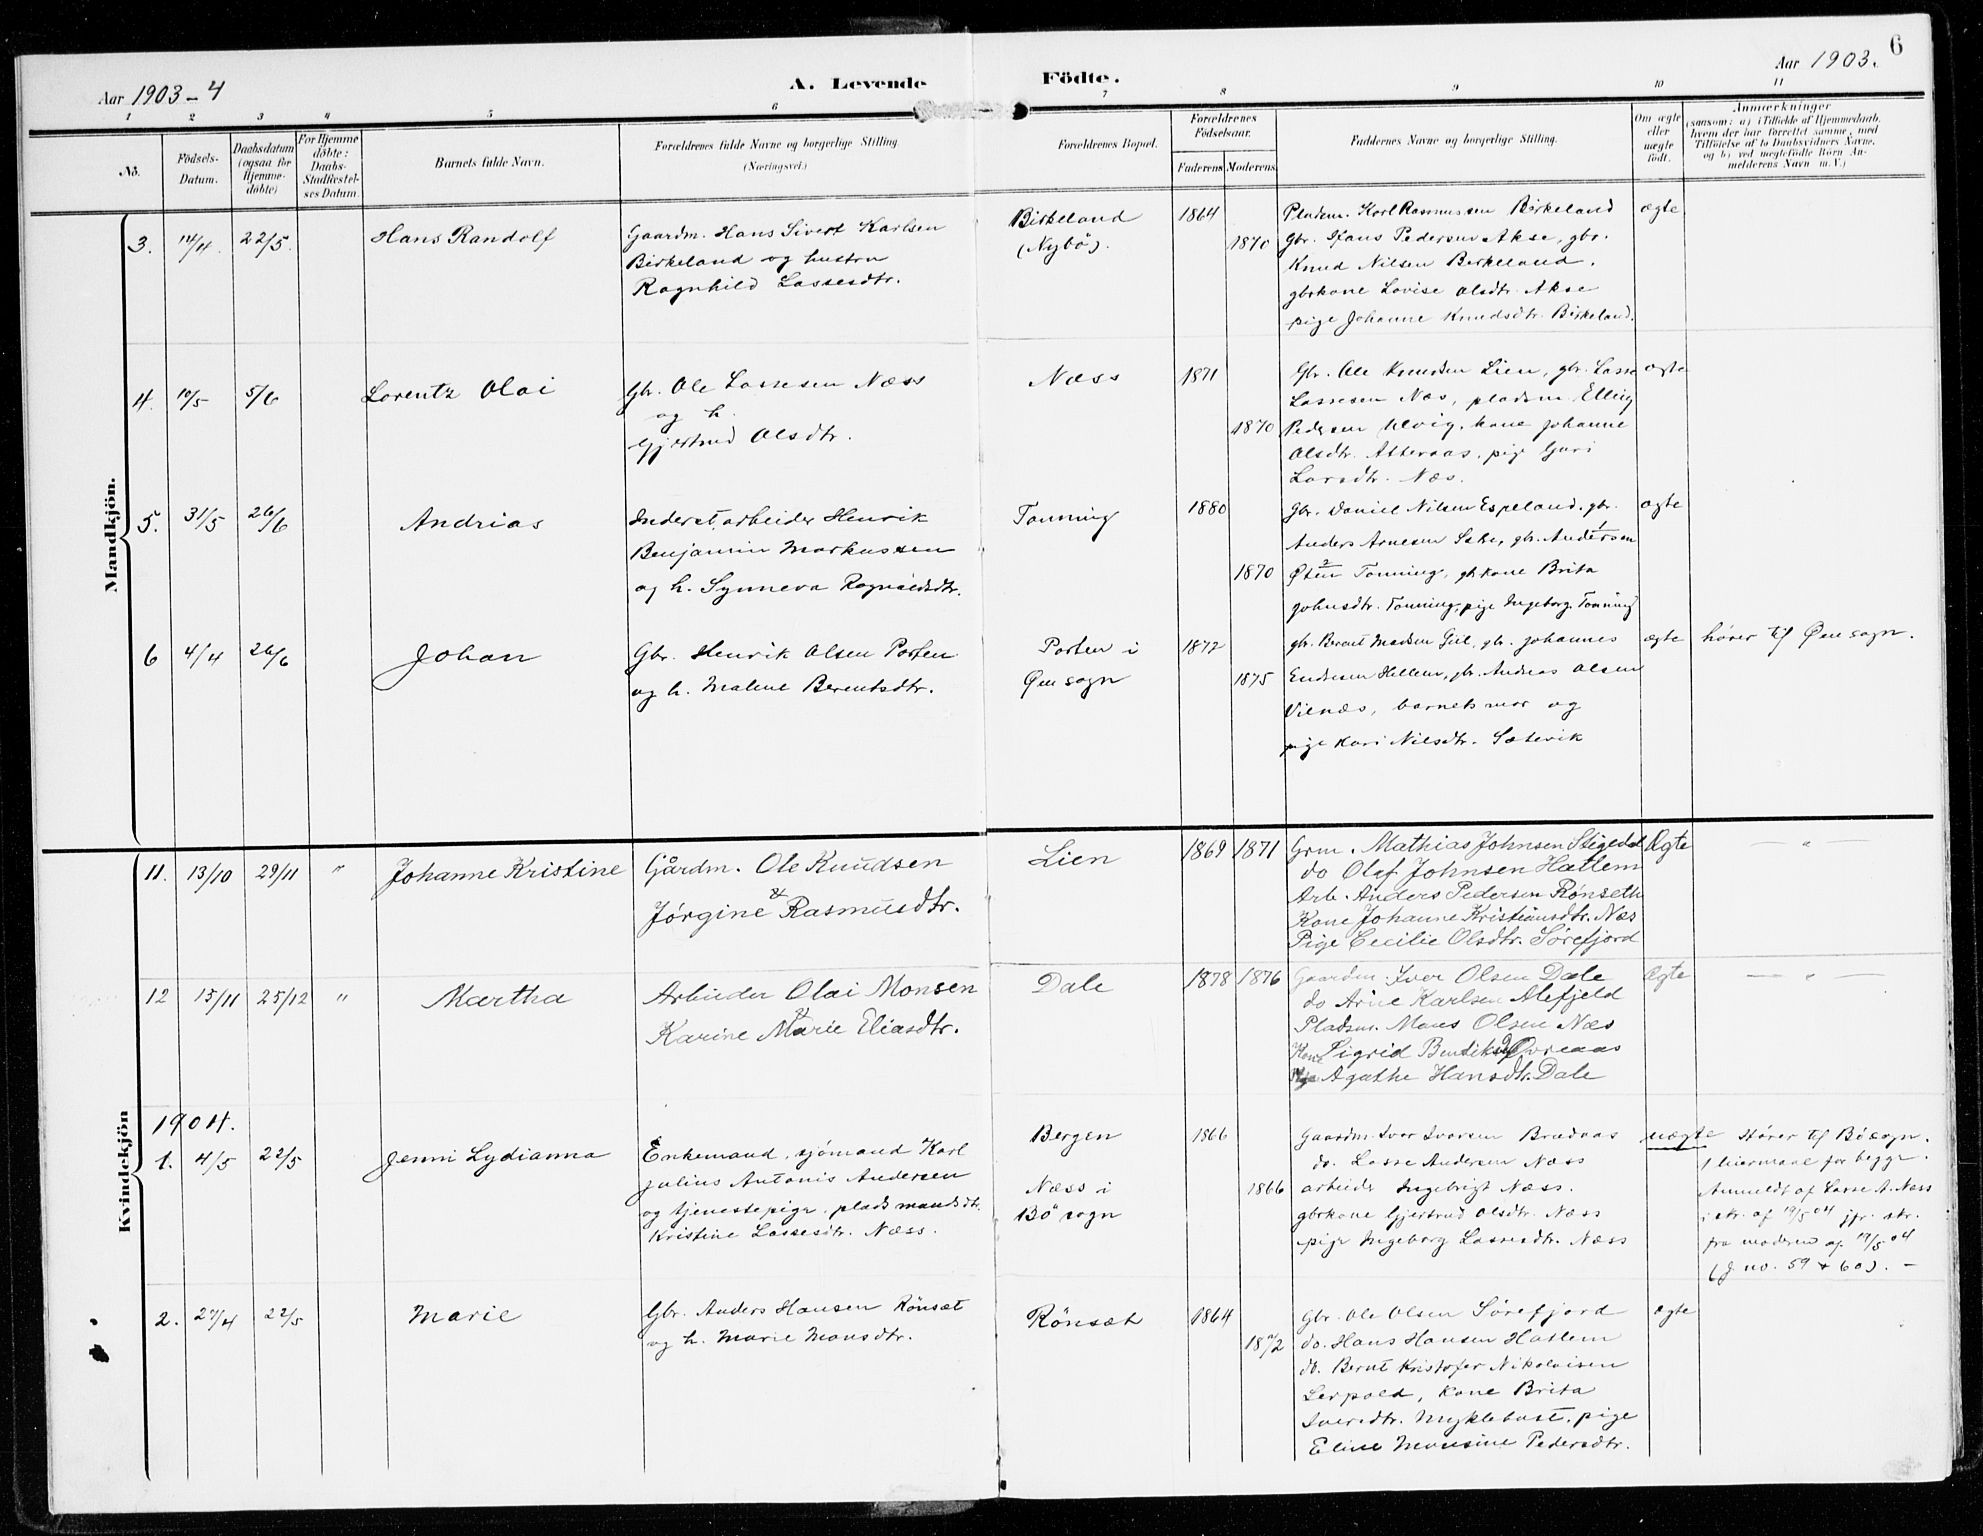 6
Aar 1903-4
A. Levende
Födte.
Aar 1903.
1 2 3 4 5 6 7 8 9 10 11
No.
Födsels-
Datum.
Daabsdatum
(ogsaa for
Hjemme-
döbte)
For Hjemme
döbte:
Daabs-
Stadfæstel-
ses Datum.
Barnets fulde Navn.
Forældrenes fulde Navne og borgerlige Stilling
(Næringsvei.)
Forældrenes Bopæl.
Forældrenes
Födselsaar.
Faderens Moderens
Faddernes Navne og borgerlige Stilling.
Om ægte
eller
uægte
födt.
Anmærkninger
(saasom: a) i Tilfælde af Hjemmedaab,
hvem der har forrettet samme, med
Tilföielse af to Daabsvidners Navne,
og b) ved uægtefödte Börn An-
melderens Navn m. V.)
Mandkjön.
3. 14/4. 22/5. Hans Randolf
Gaardm. Hans Sivert Karlsen
Birkeland og hustru
Ragnhild Lassesdtr.
Birkeland
(Nybø).
1864
1870
Pladsm. Karl Rasmussen Birkeland
Gbr. Hans Pedersen Akse, gbr.
Knud Nilsen Birkeland.
gbrkone Lovise Olsdtr. Akse
pige Johanne Knudsdtr. Birkeland.
ægte
4. 10/5 5/6 Lorentz Olai
Gbr. Ole Lassesen Næss
og h.
Gjertrud Olsdtr.
Næss
1871
1870
Gbr. Ole Knudsen Lien, gbr. Lasse
Lassesen Næs, pladsm. Elling
Pedersen Ulvig. kone Johanne
Olsdtr. Atteraas. pige Guri
Larsdtr. Næs.
ægte
5. 31/5 26/6 Andrias
Inderst arbeider Henrik
Benjamin Markussen
og h. Synneva Ragnaldsdtr.
Tonning
1880
1870
Gbr. Daniel Nilsen Espeland. gbr.
Anders Arnesen gbr. Andersen
Østen Tonning, gbkone Brita
Johnsdtr. Tonning, pige Ingeborg Tonning
ægte
6 4/4 26/6 Johan
Gbr. Henrik Olsen Porten
og h. Malene Berentsdtr.
Porten i
Øensogn
1872
1875
gbr. Berent Madsen gbr. Johannes
Endresen Hellem, gbr. Andreas Olsen
Vilnæs, barnets mor og
pige Kari Nilsdtr. Sætevik
ægte
hører til Øensogn.
Kvindekjön
11. 13/10 29/11 " Johanne Kristine
Gårdm. Ole Knudsen
&
Jørgine Rasmusdtr.
Lien
1869 1871
Grm. Mathias Johnsen Stigedal
do Olaf Johnsen Hatlem
Arb. Anders Pedersen Rønseth
Kone Johanne Kristiansdtr. Næs
Pige Cecilie Olsdtr. Sørefjord
Ægte
— " —
12 15/11 25/12 " Martha
Arbeider Olai Monsen
&
Karine Marie Eliasdtr.
Dale
1878 1876
Gaardm. Iver Olsen Dale
do Arne Karlsen Mefjeld
Pladsm. Mons Olsen Næs
Kone Sigrid Øvreaas
Pige Agathe Hansdtr. Dale
Ægte
— " —
1904.
1. 4/5 22/5 Jenni Lydianna
Enkemand, sjømand Karl
Julius Antonis Andersen
og tjenestepige, pladsmandsdt.
Kristine Lassesdtr. Næss.
Bergen
Næss i
Bö sogn
1866
1866
Gaardm. Iver Iversen Brædvas
do. Lasse Andersen Næss
arbeider Ingebrigt Næss.
gbrkone Gjertrud Olsdtr. Næss
pige Ingeborg Lassesdtr. Næss
uægte
Hører til Bøsogn.
1 leiermaal for begge.
Anmeldt af Lasse A. Næss
i skr. af 19/5 04 jfr. skr.
fra moderen af 19/5 04
(J. no. 59 + 60). -
2. 27/4 22/5 Marie
Gbr. Anders Hansen Rönsæt
og h. Marie Monsdtr.
Rönsæt
1864
1872
Gbr. Ole Olsen Sørefjord
do. Hans Hansen Hatlem
do. Bernt Kristofer Nikolaisen
Lerpold, kone Brita
Iversdtr. Myklebust, pige
Eline Monsine Pedersdtr.
ægte